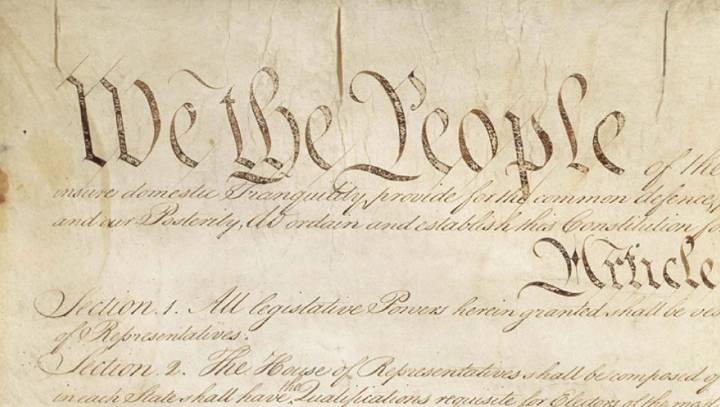 We the People of the
insure domestic Tranquility, provide for the common defence,
and our Posterity, do ordain and establish this Constitution for
Article
Section. 1. All legislative Powers herein granted shall be ves
of Representatives.
Section. 2. The House of Representatives shall be composed of
in each State shall have the Qualifications requisite for Electors of the most